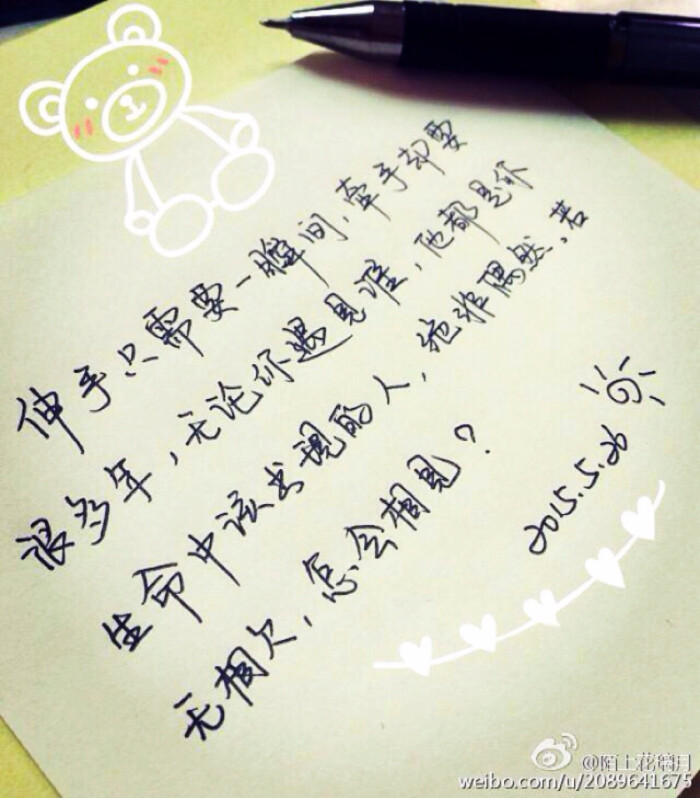 伸手只需要一瞬间，牵手却要
很多年，无论你遇见谁，他都是你
生命中该出现的人，绝非偶然，若
无相欠，怎会相见？
2015.5.26
@陌上花镝月
weibo.com/u/2089641675